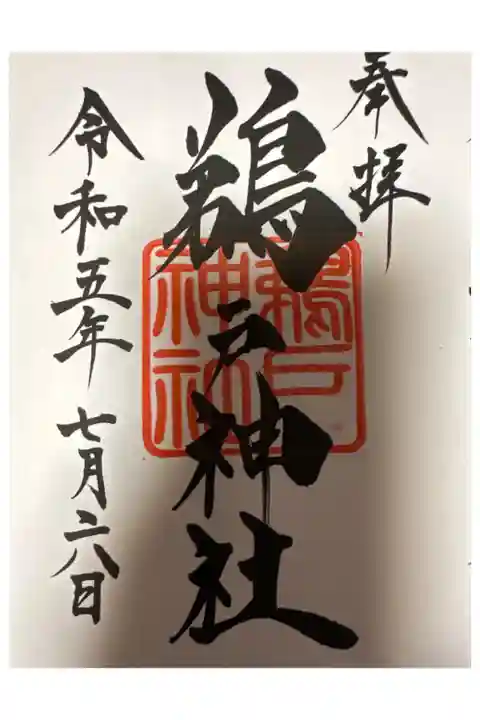 奉拝
鵜戸神社
鵜戸
神社
令和五年七月二八日